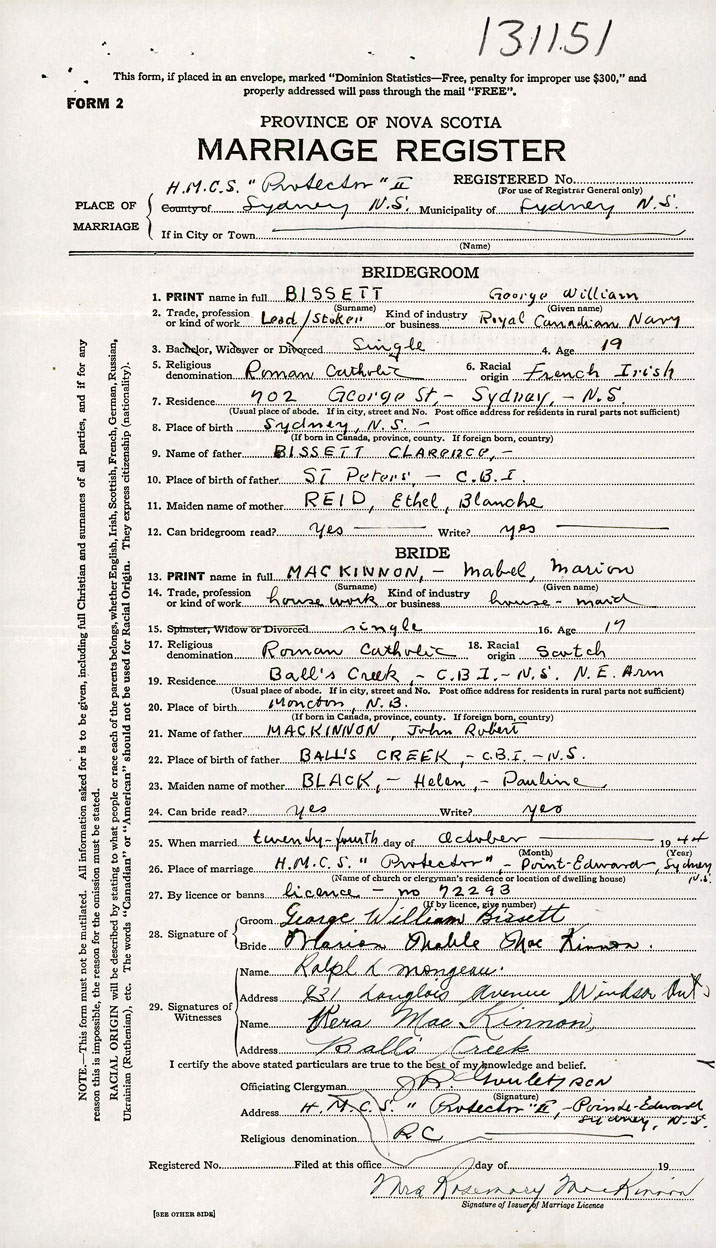 131151
This form, if placed in an envelope, marked "Dominion Statistics—Free, penalty for improper use $300," and
properly addressed will pass through the mail "FREE".
FORM 2
PROVINCE OF NOVA SCOTIA
MARRIAGE REGISTER
H.M.C.S. "Protector" II REGISTERED No.
(For use of Registrar General only)
PLACE OF MARRIAGE
County of Sydney N.S. Municipality of Sydney N.S.
If in City or Town
(Name)
BRIDEGROOM
1. PRINT name in full BISSETT George William
(Surname) (Given name)
2. Trade, profession or kind of work Lead/Stoker Kind of industry or business Royal Canadian Navy
3. Bachelor, Widower or Divorced Single 4. Age 19
5. Religious denomination Roman Catholic 6. Racial origin French Irish
7. Residence 702 George St, - Sydney, - N.S.
(Usual place of abode. If in city, street and No. Post office address for residents in rural parts not sufficient)
8. Place of birth Sydney, N.S. -
(If born in Canada, province, county. If foreign born, country)
9. Name of father BISSETT CLARENCE, -
10. Place of birth of father ST Peters, - C.B.I.
11. Maiden name of mother REID, Ethel, Blanche
12. Can bridegroom read? yes Write? yes
BRIDE
13. PRINT name in full MACKINNON, - Mabel, Marion
(Surname) (Given name)
14. Trade, profession or kind of work house work Kind of industry or business house - maid
15. Spinster, Widow or Divorced single 16. Age 17
17. Religious denomination Roman Catholic 18. Racial origin Scotch
19. Residence Ball's Creek, - C.B.I. - N.S. N.E. Arm
(Usual place of abode. If in city, street and No. Post office address for residents in rural parts not sufficient)
20. Place of birth Moncton, N.B.
(If born in Canada, province, county. If foreign born, country)
21. Name of father MACKINNON, John Robert
22. Place of birth of father BALL'S CREEK, - C.B.I. - N.S.
23. Maiden name of mother BLACK, - Helen, - Pauline
24. Can bride read? yes Write? yes
25. When married twenty-fourth day of October 1944
(Month) (Year)
26. Place of marriage H.M.C.S. "Protector", - Point-Edward, Sydney N.S.
(Name of church or clergyman's residence or location of dwelling house)
27. By licence or banns licence - no 72293
(If by licence, give number)
28. Signature of
Groom George William Bissett
Bride Marion Mable Mac Kinnon.
29. Signatures of Witnesses
Name Ralph L Mongeau.
Address 831 Langlois Avenue Windsor Ont
Name Vera Mac Kinnon,
Address Balls Creek
I certify the above stated particulars are true to the best of my knowledge and belief.
Officiating Clergyman Goulet RCN
(Signature)
Address H.M.C.S. "Protector" II, - Pointe-Edward
Sydney, N.S.
Religious denomination RC
Registered No. Filed at this office day of 19
Mrs Rosemary MacKinnon
Signature of Issuer of Marriage Licence
[SEE OTHER SIDE]
NOTE.—This form must not be mutilated. All information asked for is to be given, including full Christian and surnames of all parties, and if for any
reason this is impossible, the reason for the omission must be stated.
RACIAL ORIGIN will be described by stating to what people or race each of the parents belongs, whether English, Irish, Scottish, French, German, Russian,
Ukrainian (Ruthenian), etc. The words "Canadian" or "American" should not be used for Racial Origin. They express citizenship (nationality).